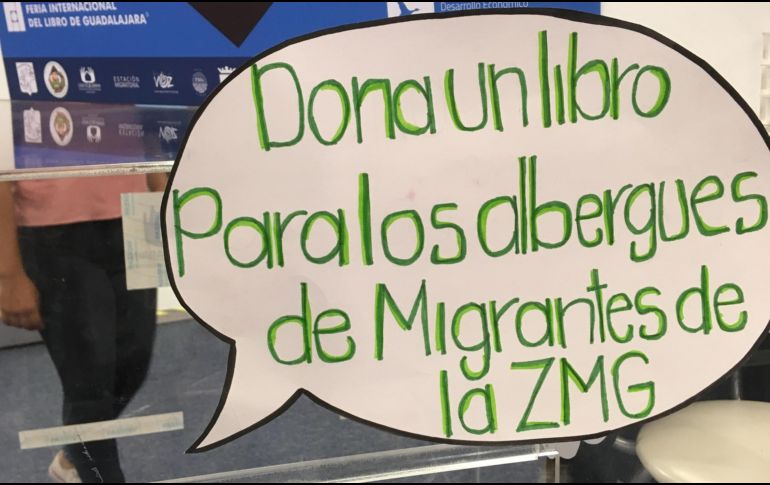 FERIA INTERNACIONAL
DEL LIBRO DE GUADALAJARA
Desarrollo Económico
ESTACIÓN
MIGRATORIA
VOZ
Dona un libro
Para los albergues
de Migrantes de
la ZMG